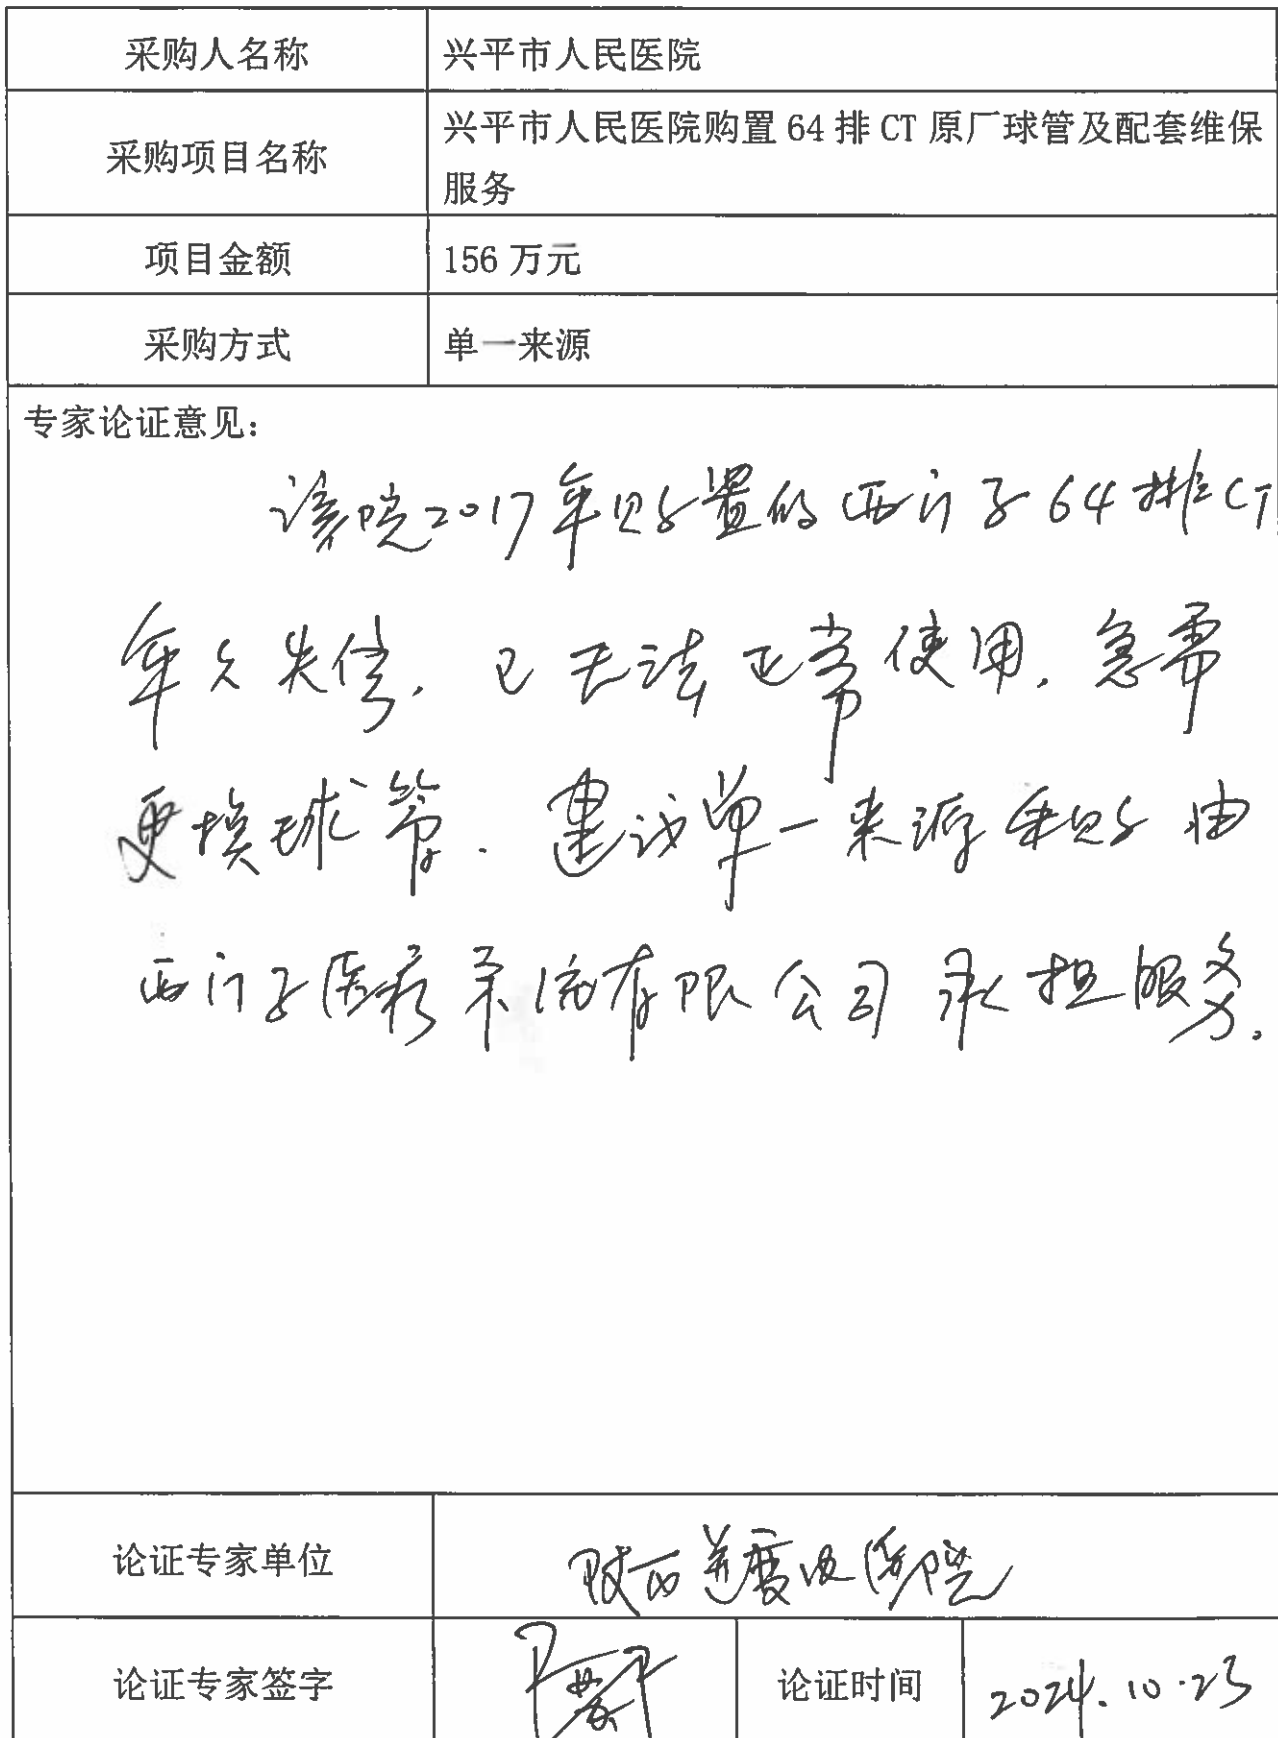 采购人名称 兴平市人民医院
采购项目名称 兴平市人民医院购置 64 排 CT 原厂球管及配套维保
服务
项目金额 156 万元
采购方式 单一来源
专家论证意见：
该院2017年购置的西门子64排CT
年久失修，已无法正常使用，急需
更换球管．建议单一来源采购由
西门子医疗系统有限公司承担服务。
论证专家单位 医院
论证专家签字 论证时间 2024.10.23